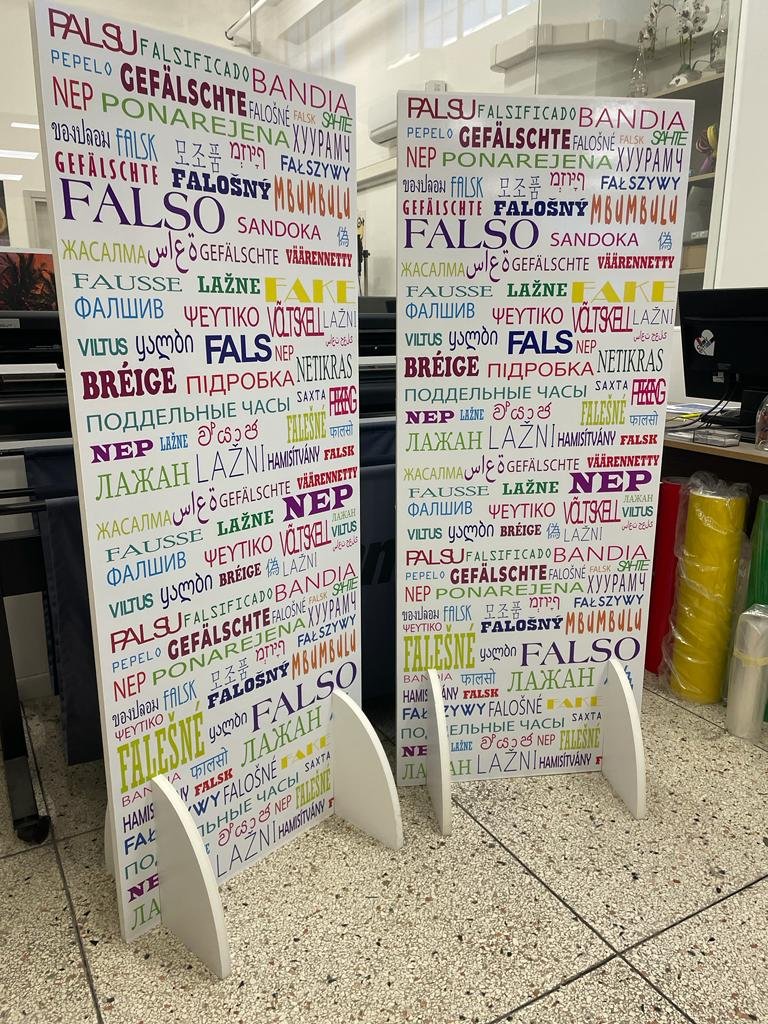 PALSU FALSIFICADO BANDIA
PEPELO GEFÄLSCHTE FALOŠNÉ FALSK SAHTE
NEP PONAREJENA ХУУРАМЧ
ของปลอม FALSK 모조품 FAŁSZYWY
GEFÄLSCHTE FALOŠNÝ MBUMBULU
FALSO SANDOKA 偽
ЖАСАЛМА GEFÄLSCHTE VÄÄRENNETTY
FAUSSE LAŽNE FAKE
ФАЛШИВ ΨΕΥΤΙΚΟ VÕLTSKELL LAŽNI
VILTUS ყალბი FALS NEP NETIKRAS
BRÉIGE ПІДРОБКА
ПОДДЕЛЬНЫЕ ЧАСЫ SAXTA
NEP LAŽNE FALEŠNÉ फालसो
ЛАЖАН LAŽNI HAMISÍTVÁNY FALSK
ЖАСАЛМА GEFÄLSCHTE VÄÄRENNETTY
FAUSSE LAŽNE NEP
ФАЛШИВ ΨΕΥΤΙΚΟ VÕLTSKELL ЛАЖАН VILTUS
VILTUS ყალბი BRÉIGE 偽 LAŽNI
PALSU FALSIFICADO BANDIA
PEPELO GEFÄLSCHTE FALOŠNÉ FALSK SAHTE
NEP PONAREJENA ХУУРАМЧ
ของปลอม FALSK 모조품 FAŁSZYWY
ΨΕΥΤΙΚΟ FALOŠNÝ MBUMBULU
FALEŠNÉ ყალბი FALSO
फालसो FALSK ЛАЖАН
FALOŠNÉ FAKE
SAXTA
NEP FALEŠNÉ
LAŽNI HAMISÍTVÁNY
PALSU FALSIFICADO BANDIA
PEPELO GEFÄLSCHTE FALOŠNÉ FALSK SAHTE
NEP PONAREJENA ХУУРАМЧ
ของปลอม FALSK 모조품 FAŁSZYWY
GEFÄLSCHTE FALOŠNÝ MBUMBULU
FALSO SANDOKA 偽
ЖАСАЛМА GEFÄLSCHTE VÄÄRENNETTY
FAUSSE LAŽNE FAKE
ФАЛШИВ ΨΕΥΤΙΚΟ VÕLTSKELL LAŽNI
VILTUS ყალბი FALS NEP
BRÉIGE ПІДРОБКА NETIKRAS
ПОДДЕЛЬНЫЕ ЧАСЫ SAXTA
NEP LAŽNE FALEŠNÉ फालसो
ЛАЖАН LAŽNI HAMISÍTVÁNY FALSK
ЖАСАЛМА GEFÄLSCHTE VÄÄRENNETTY
FAUSSE LAŽNE NEP
ФАЛШИВ ΨΕΥΤΙΚΟ VÕLTSKELL ЛАЖАН VILTUS
VILTUS ყალბი BRÉIGE 偽 LAŽNI
PALSU FALSIFICADO BANDIA
PEPELO GEFÄLSCHTE FALOŠNÉ FALSK SAHTE
NEP PONAREJENA ХУУРАМЧ
ของปลอม FALSK 모조품 FAŁSZYWY
ΨΕΥΤΙΚΟ FALOŠNÝ MBUMBULU
FALEŠNÉ ყალბი FALSO
फालसो ЛАЖАН
FALSK
FALOŠNÉ FAKE
ПОДДЕЛЬНЫЕ ЧАСЫ SAXTA
LAŽNE NEP FALEŠNÉ
LAŽNI HAMISÍTVÁNY